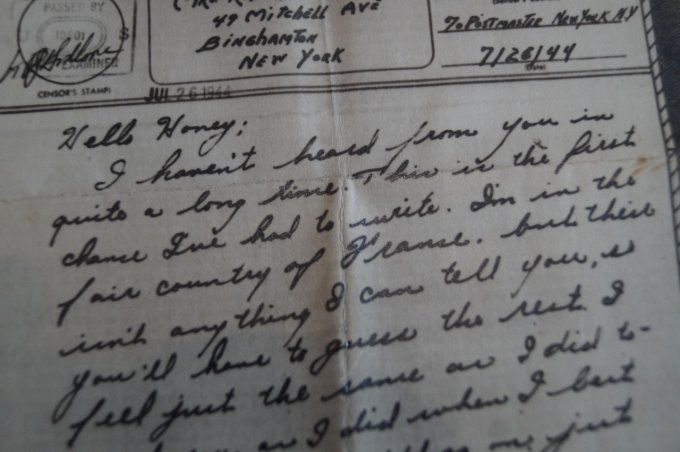 PASSED BY
U S
EXAMINER
CENSOR'S STAMP)
49 MITCHELL AVE
BINGHAMTON
NEW YORK
℅ POSTMASTER NEW YORK N.Y
7/26/44
(Date)
JUL 26 1944
Hello Honey;
I haven't heard from you in
quite a long time. This is the first
chance I've had to write. I'm in the
fair country of Franse. but their
isn't anything I can tell you, so
you'll have to guess the rest. I
feel just the same as I did to-
as I did when I
me just